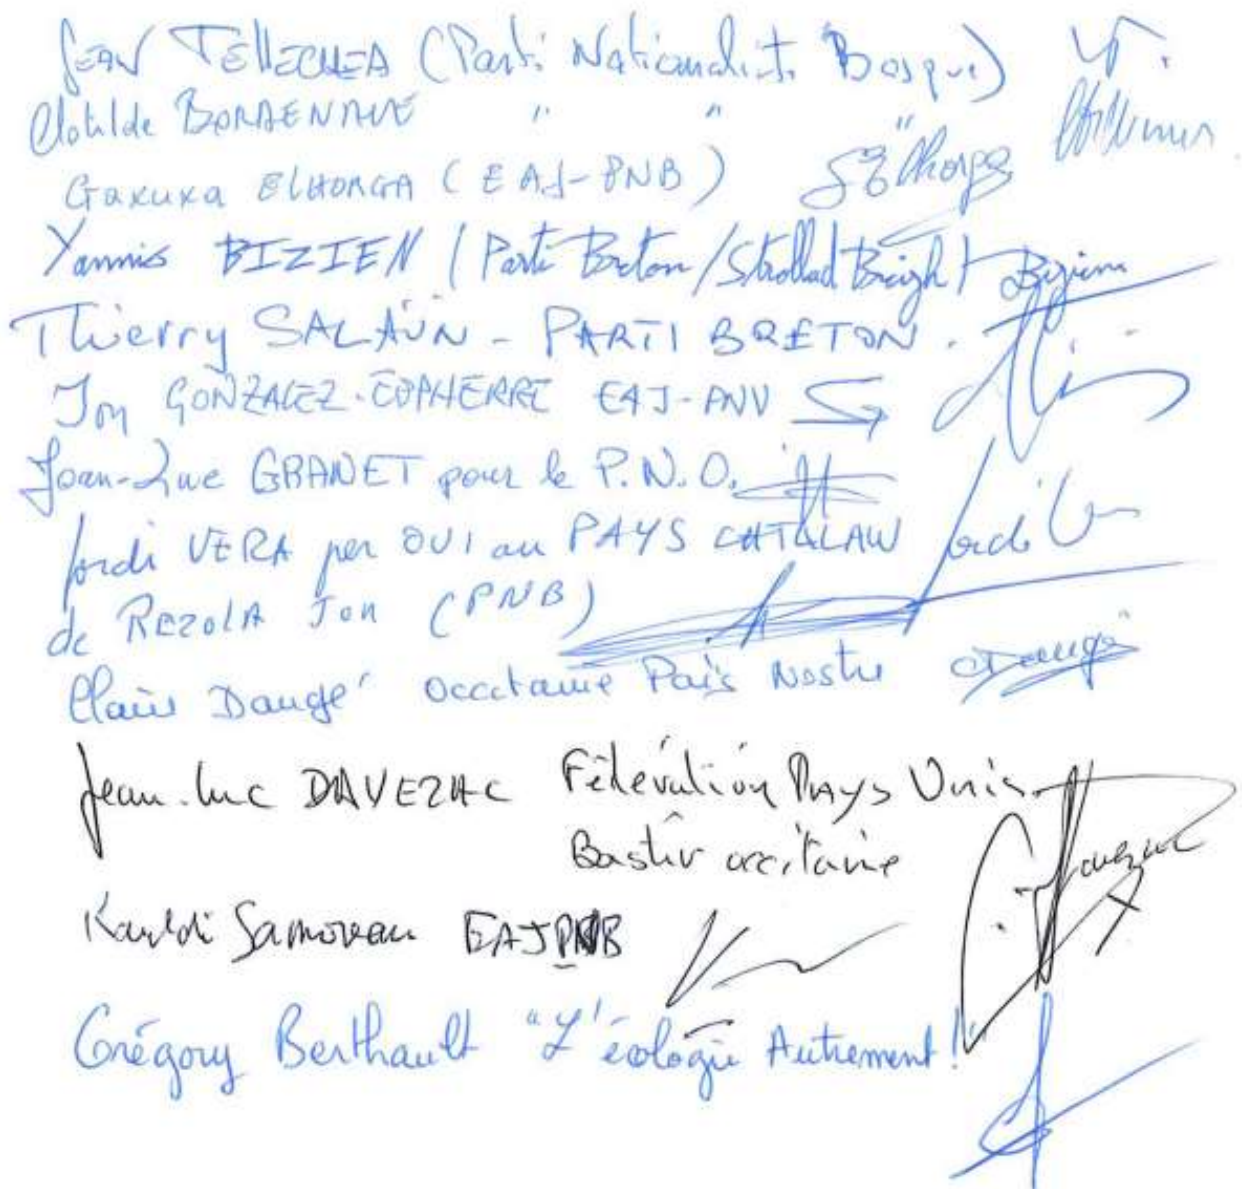 Jean TELLECHEA (Parti Nationaliste Basque)
Clotilde BORDENAVE " " "
Gaxuxa ELHORGA (EAJ-PNB) Elhorga
Yannis BIZIEN (Parti Breton/Strollad Breizh) Bizien
Thierry SALAÜN - PARTI BRETON.
Jon GONZALEZ-ETCHEBERRE EAJ-PNV
Joan-Luc GRANET pour le P.N.O.
Jordi VERA per OUI au PAYS CATALAN Jordi
de REZOLA Jon (PNB)
Claire Daugé Occitanie País Nostre CDaugé
Jean-Luc DAVEZAC Fédération Pays Unis
Bastir occitanie
EAJPNB
Grégory Berthault "L'écologie Autrement!"